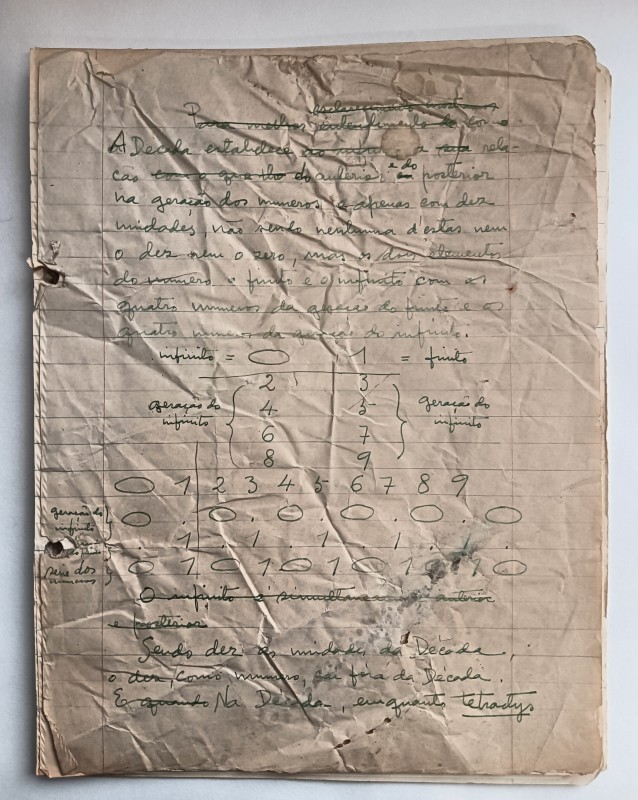 Para melhor entendimento do como
A Decada estabelece a sua rela-
ção com o que do anterior e do posterior
na geração dos numeros é apenas com dez
unidades, não sendo nenhuma d'estas nem
o dez nem o zero, mas os dois elementos
do numero o finito e o infinito com os
quatro numeros da geração do finito e os
quatro numeros da geração do infinito:
infinito = 0 1 = finito
2 3
geração do infinito { 4 5 } geração do infinito
6 7
8 9
0 1 2 3 4 5 6 7 8 9
geração do infinito } 0 . 0 . 0 . 0 . 0 . 0
. 1 . 1 . 1 . 1 .
serie dos numeros } 0 1 0 1 0 1 0 1 0 1 0
O infinito é simultaneamente anterior
e posterior
Sendo dez as unidades da Década,
o dez, como numero, cai fóra da Década.
E quando Na Década, emquanto tetractys